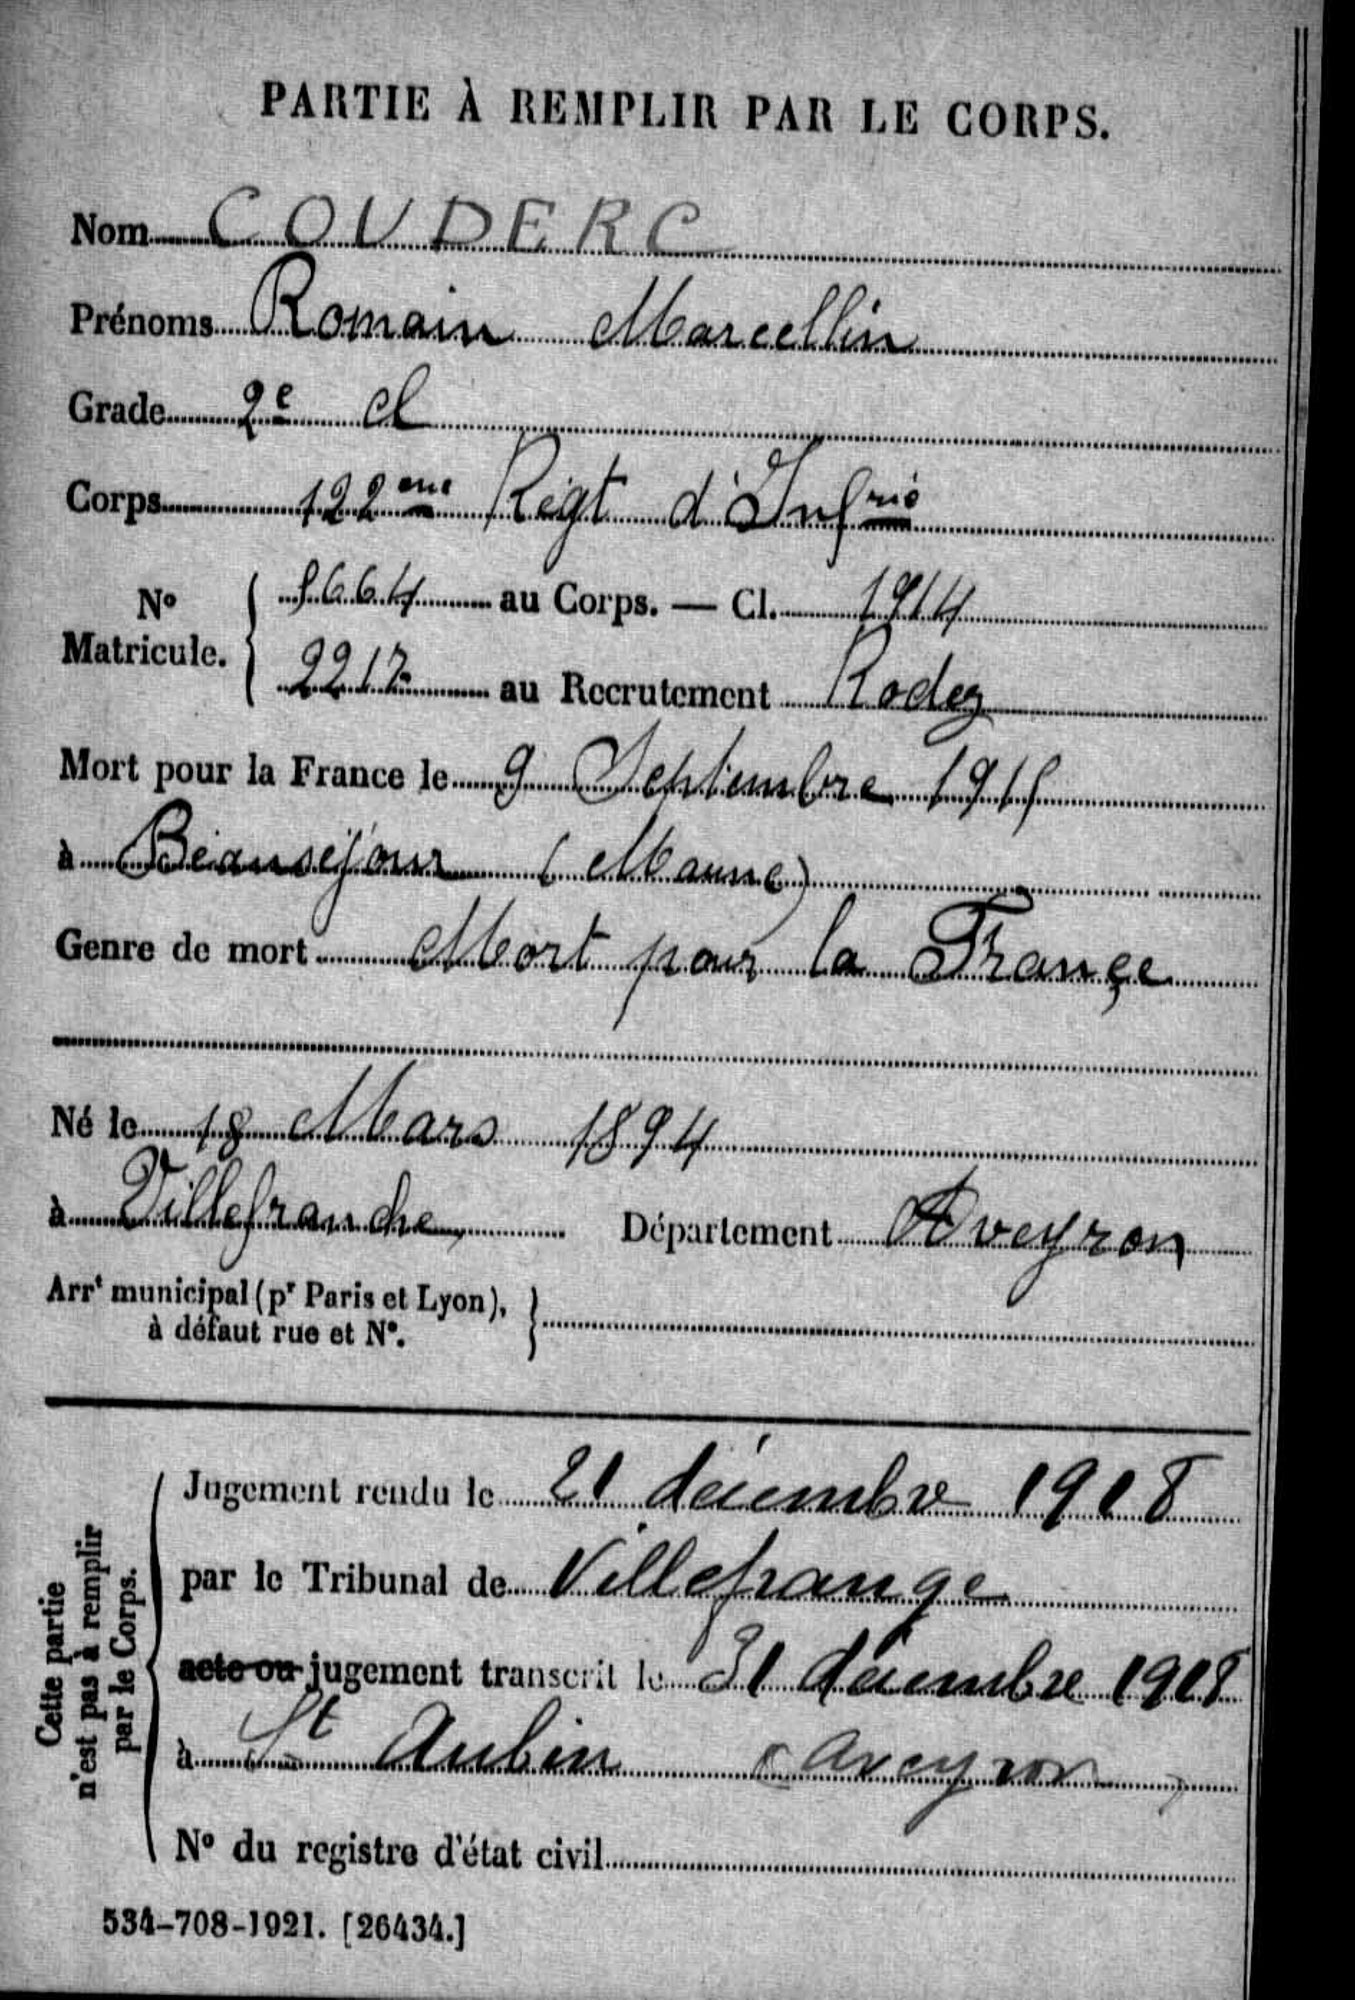 PARTIE À REMPLIR PAR LE CORPS.
Nom COUDERC
Prénoms Romain Marcellin
Grade 2e cl
Corps 122eme Régt d'Infrie
No Matricule. 5664 au Corps. — Cl. 1914
2217 au Recrutement Rodez
Mort pour la France le 9 Septembre 1915
à Beauséjour (Marne)
Genre de mort Mort pour la France
Né le 18 Mars 1894
à Villefranche Département Aveyron
Arrt municipal (pr Paris et Lyon),
à défaut rue et No.
Cette partie
n'est pas à remplir
par le Corps.
Jugement rendu le 21 décembre 1918
par le Tribunal de Villefrange
acte ou jugement transcrit le 31 décembre 1918
à St Aubin (Aveyron)
No du registre d'état civil
534-708-1921. [26434.]